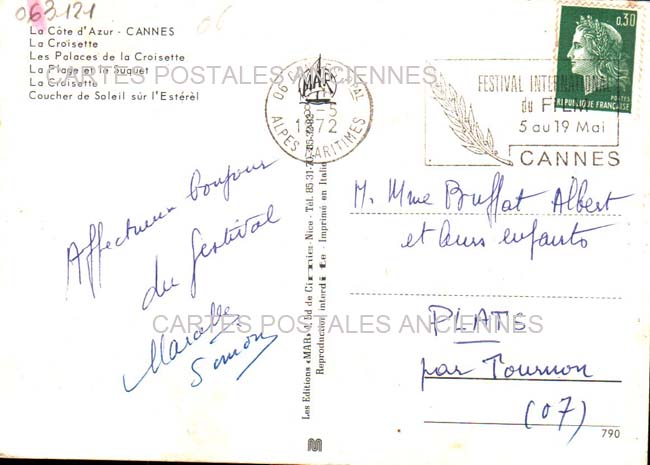 063121
06
La Côte d'Azur - CANNES
La Croisette
Les Palaces de la Croisette
La Plage et le Suquet
La Croisette
Coucher de Soleil sûr l'Estérèl
CARTES POSTALES ANCIENNES
MAR
06
-5
1972
ALPES MARITIMES
FESTIVAL INTERNATIONAL
du FILM
5 au 19 Mai
CANNES
0,30
POSTES
REPUBLIQUE FRANÇAISE
Affectueux bonjour
du festival
Marcelle
Simon
Les Editions «MAR» Bd de - Nice - Tel.
Reproduction interdite - Imprimé en Italie
M. Mme Buffat Albert
et leurs enfants
PLATS
par Tournon
(07)
CARTES POSTALES ANCIENNES
790